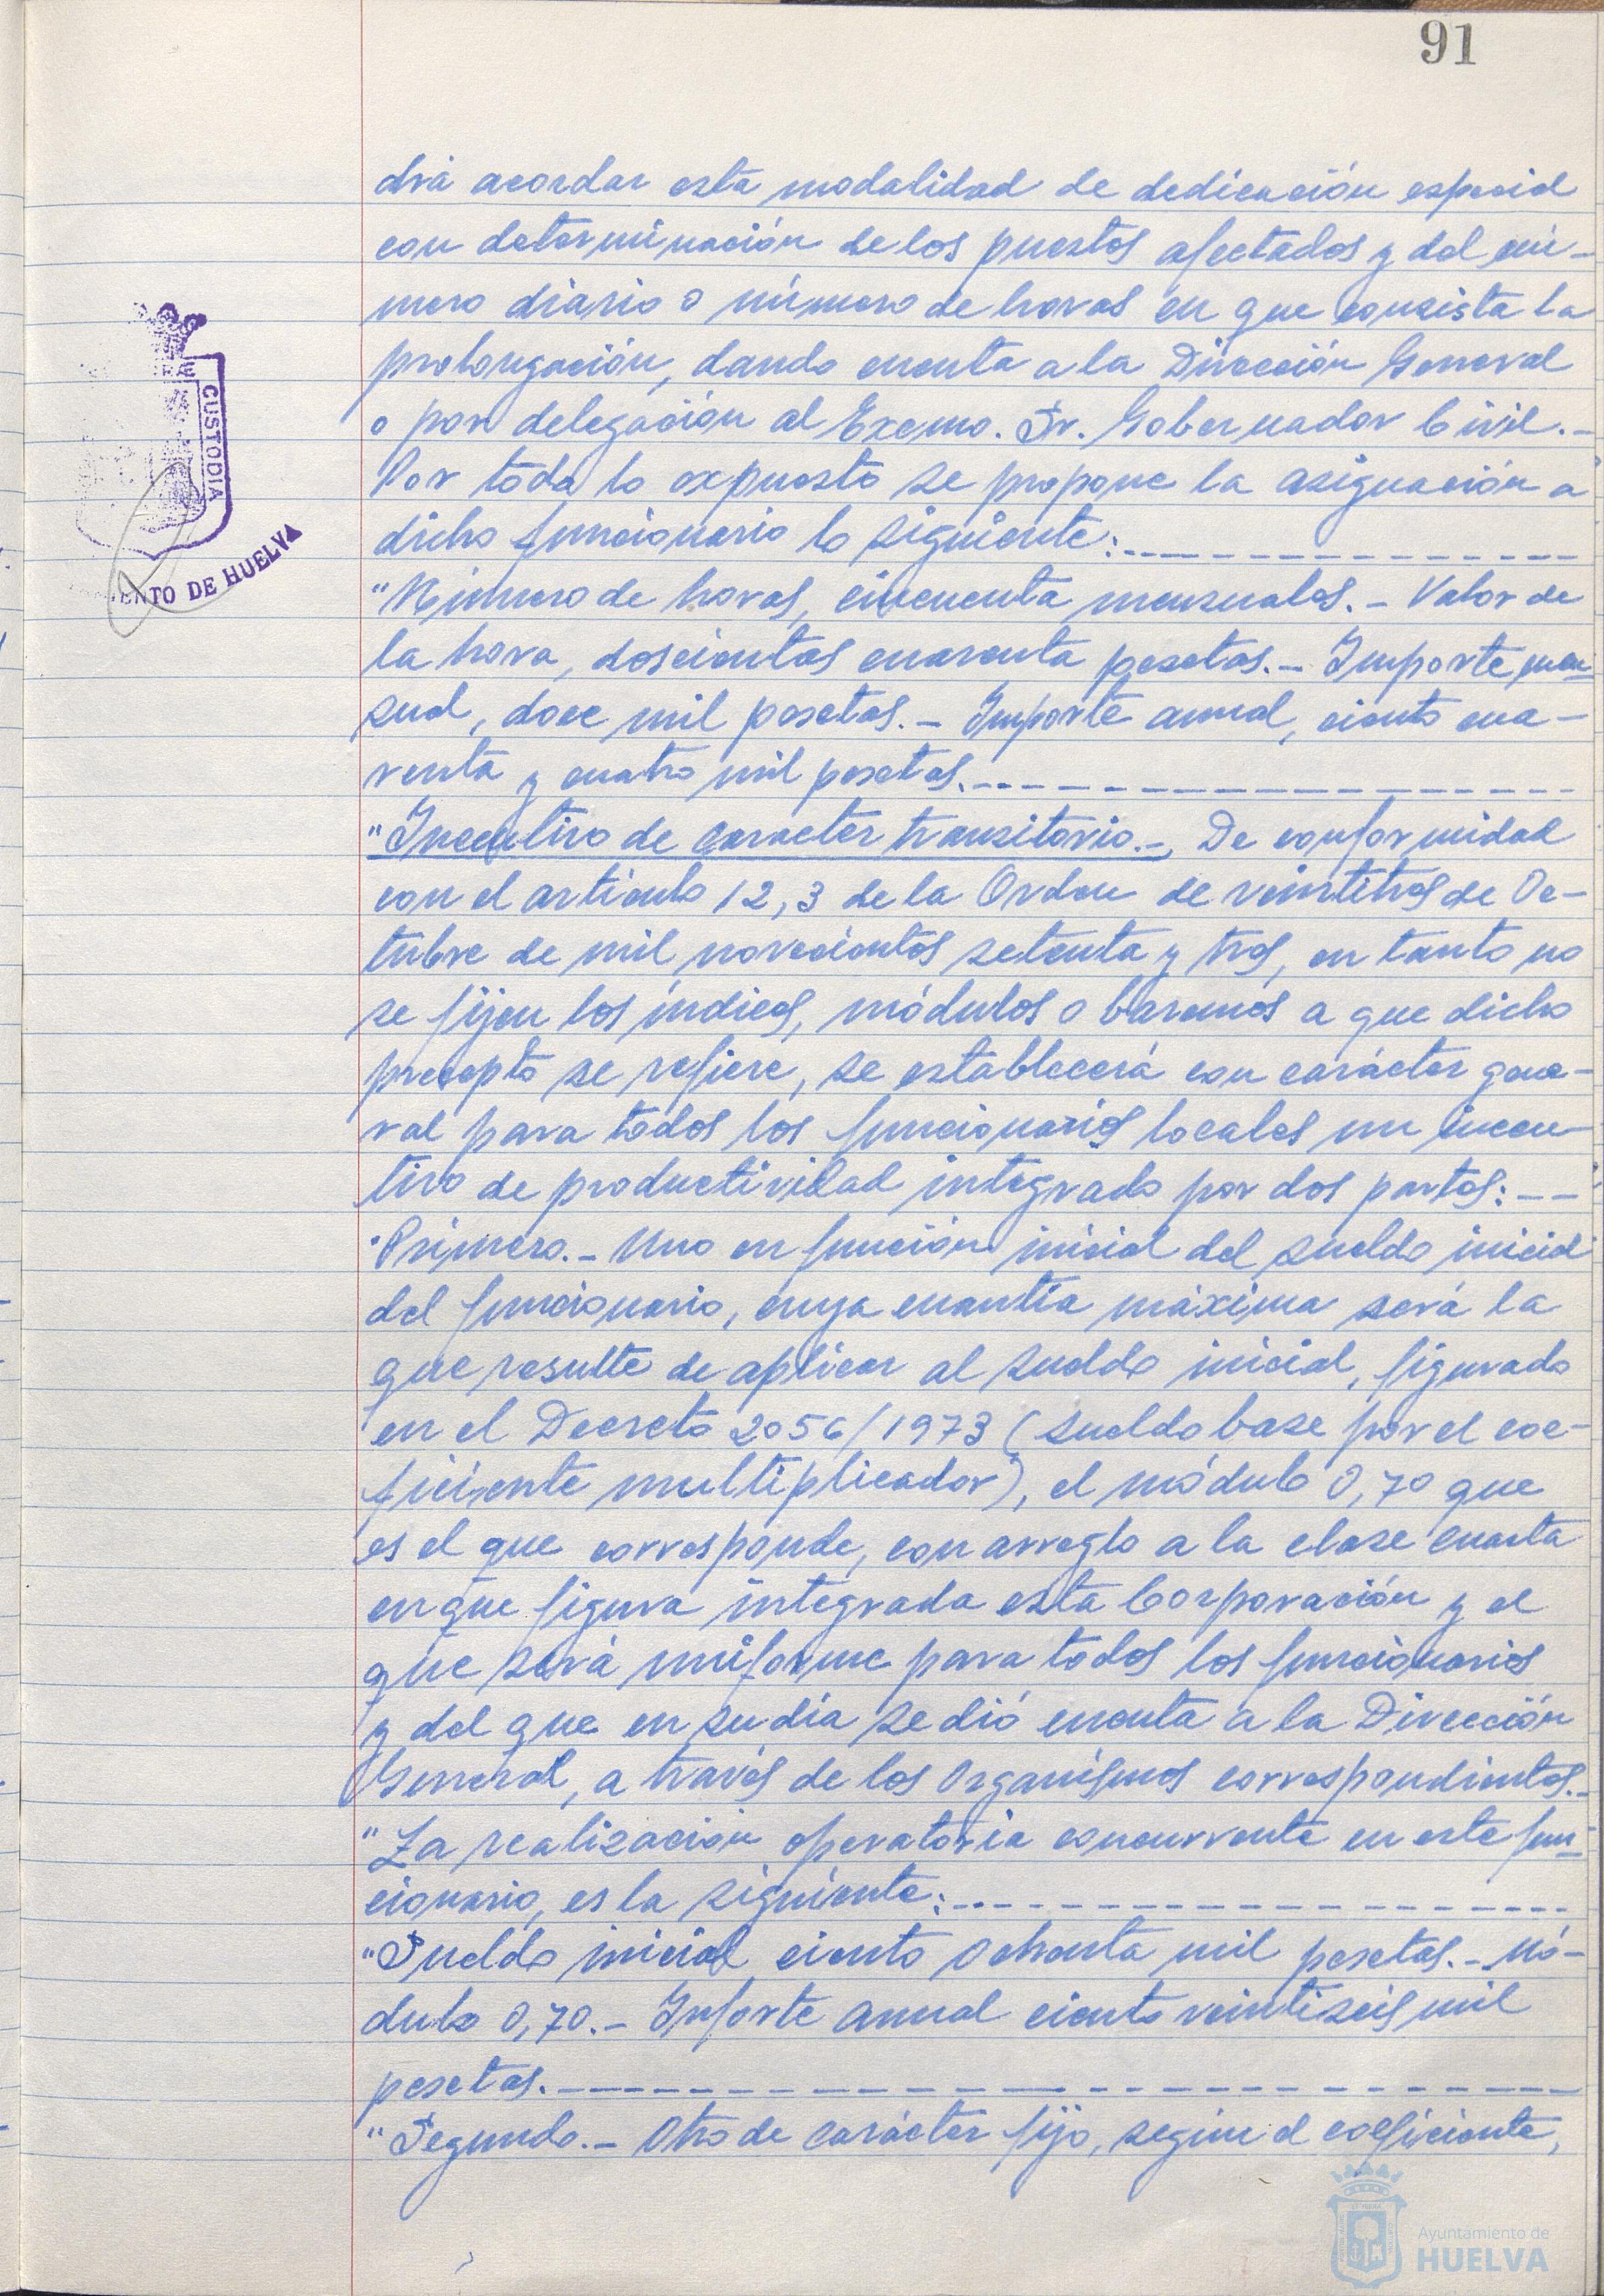 91
drá acordar esta modalidad de dedicación especial
con determinación de los puestos afectados y del nú-
mero diario o número de horas en que consista la
prolongación, dando cuenta a la Dirección General
o por delegación al Excmo. Sr. Gobernador Civil.-
Por todo lo expuesto se propone la asignación a
dicho funcionario lo siguiente:
"Número de horas, cincuenta mensuales.- Valor de
la hora, doscientas cuarenta pesetas.- Importe men-
sual, doce mil pesetas.- Importe anual, ciento cua-
renta y cuatro mil pesetas.
"Incentivo de caracter transitorio.- De conformidad
con el artículo 12,3 de la Orden de veintitres de Oc-
tubre de mil novecientos setenta y tres, en tanto no
se fijen los índices, módulos o baremos a que dicho
precepto se refiere, se establecerá con carácter gene-
ral para todos los funcionarios locales un incen-
tivo de productividad integrado por dos partes:--
"Primero.- Uno en función inicial del sueldo inicial
del funcionario, cuya cuantía máxima será la
que resulte de aplicar al sueldo inicial, figurado
en el Decreto 2056/1973 (sueldo base por el coe-
ficiente multiplicador), el módulo 0,70 que
es el que corresponde, con arreglo a la clase cuarta
en que figura integrada esta Corporación y el
que será uniforme para todos los funcionarios
y del que en su día se dió cuenta a la Dirección
General, a través de los Organismos correspondientes.-
"La realización operatoria concurrente en este fun-
cionario, es la siguiente:
"Sueldo inicial ciento ochenta mil pesetas.- Mó-
dulo 0,70.- Importe anual ciento veintiseis mil
pesetas.
"Segundo.- Otro de carácter fijo, según el coeficiente,
CUSTODIA
ENTO DE HUELVA
Ayuntamiento de
HUELVA